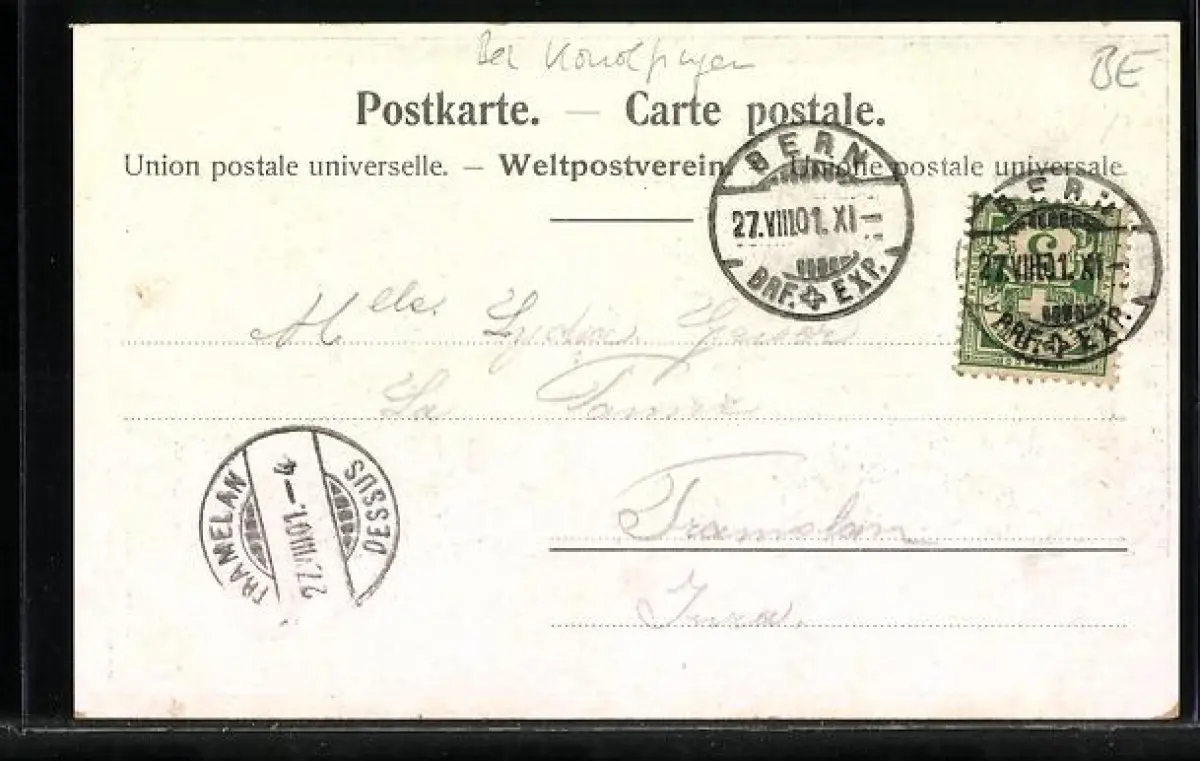 Bei Konolfingen
BE
Postkarte. — Carte postale.
Union postale universelle. — Weltpostverein. — Unione postale universale.
BERN
27.VIII.01.XI-
BRF. EXP.
BERN
27.VIII.01.XI
BRF. EXP.
5
Melle. Lydia
La
Tramelan
Jura.
TRAMELAN
27.VIII.01.-4
DESSUS